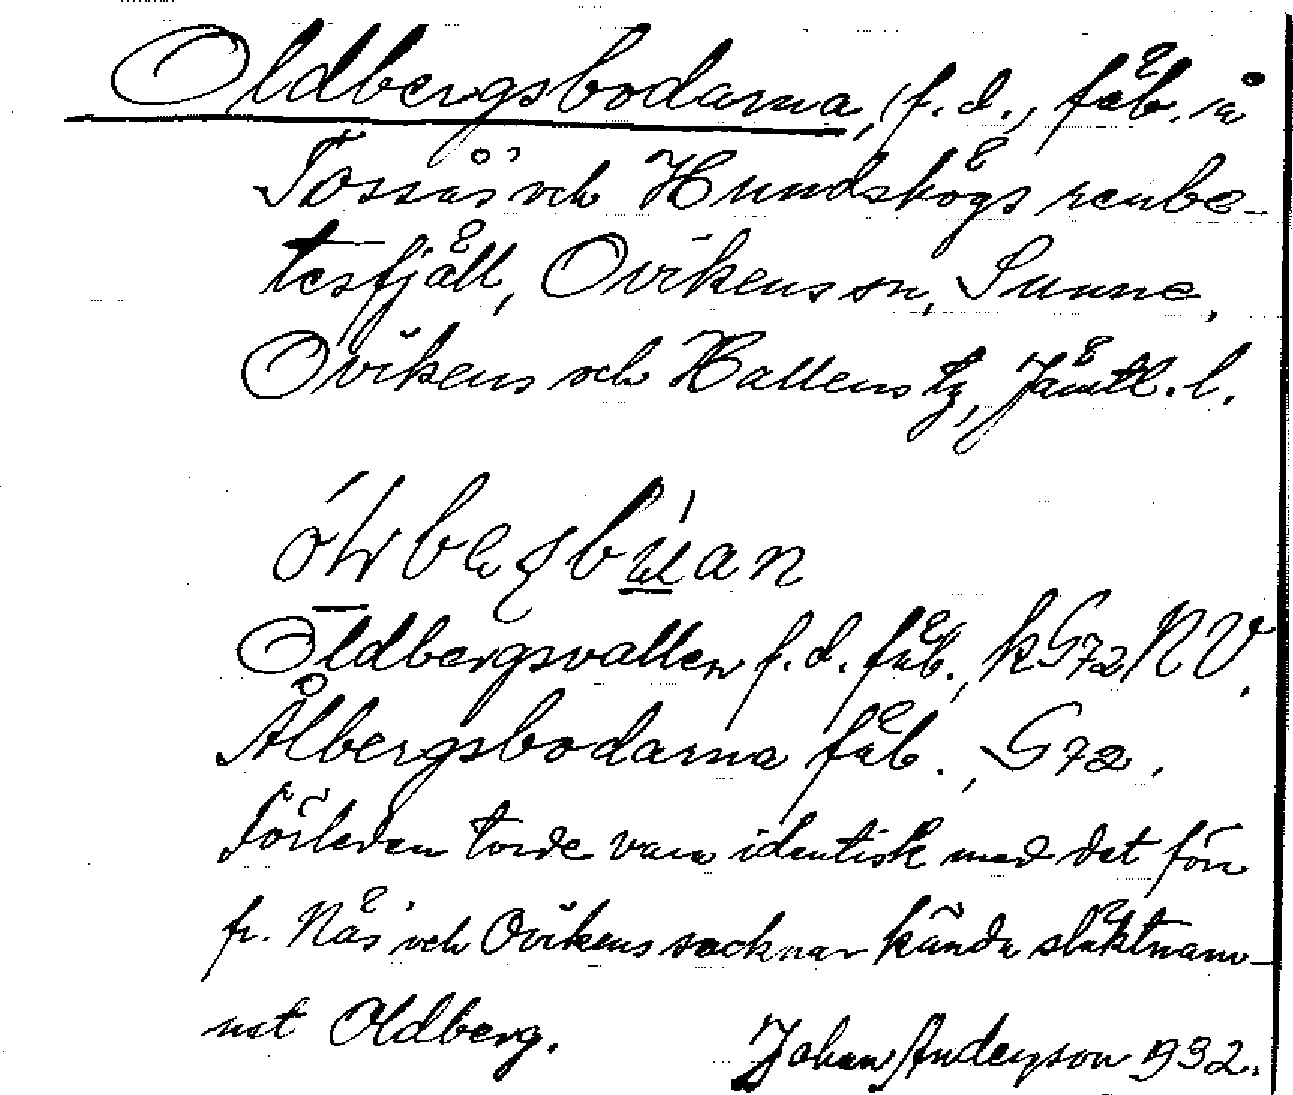 Oldbergsbodarna, f. d., fäb. å
Tossås och Hundshögs renbe-
tesfjäll, Ovikens sn, Sunne,
Ovikens och Hallens tg, Jämtl. l.
Oldbergsvallen f. d. fäb., kG72 NV.
Ålbergsbodarna fäb., G72.
Förleden torde vara identisk med det förr
fr. Näs och Ovikens socknar kända släktnam-
net Oldberg.
Johan Anderson 1932.